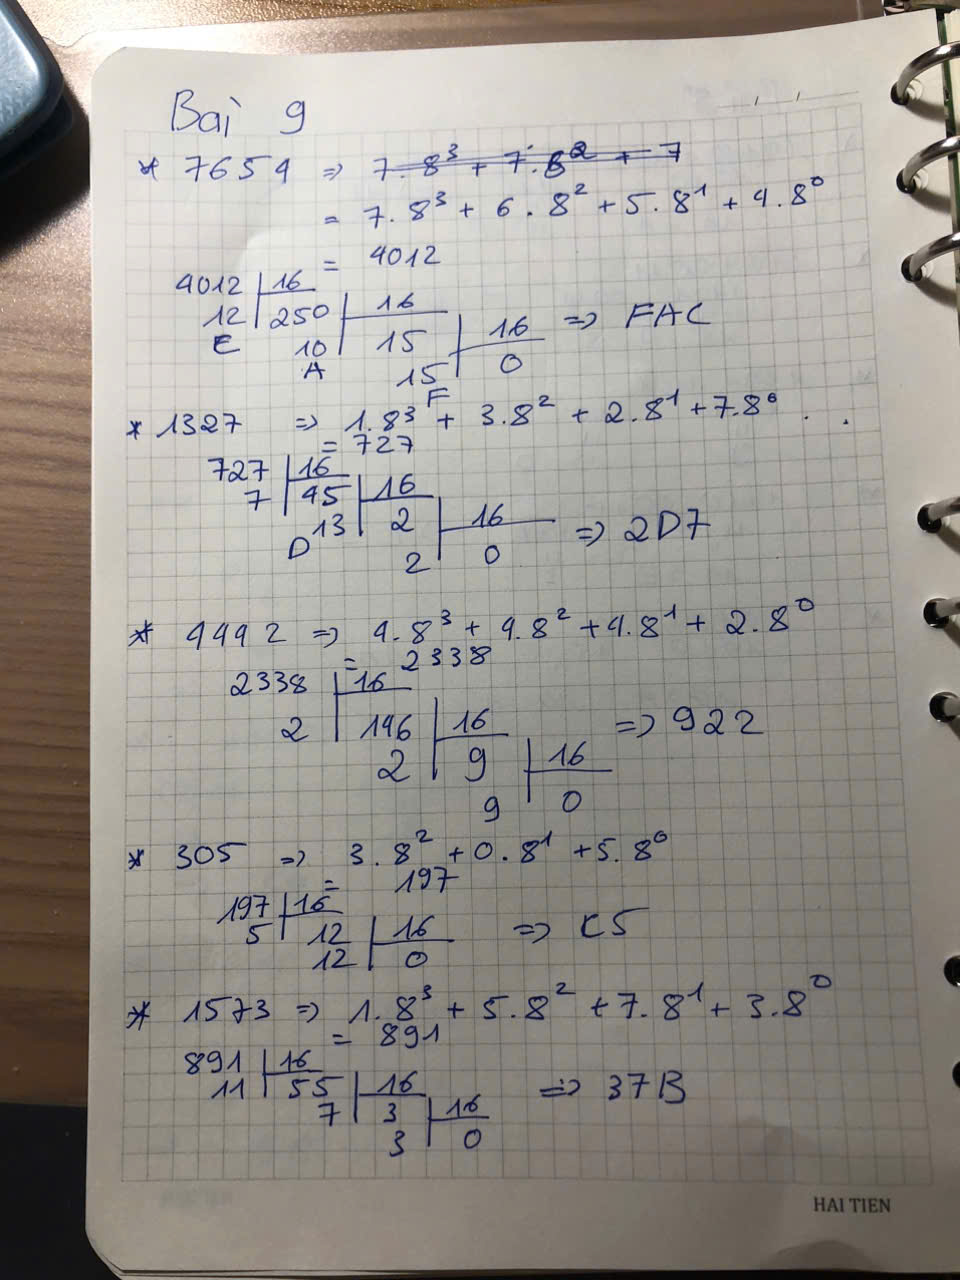 Bai 9
* 7654 => 7.8³ + 7.8² + 7
= 7.8³ + 6.8² + 5.8¹ + 4.8⁰
= 4012
4012 16
12 250 16
C 10 15 16 => FAC
A 15 0
F
* 1327 => 1.8³ + 3.8² + 2.8¹ + 7.8⁰
= 727
727 16
7 45 16
D 13 2 16 => 2D7
2 0
* 4442 => 4.8³ + 4.8² + 4.8¹ + 2.8⁰
= 2338
2338 16
2 146 16 => 922
2 9 16
9 0
* 305 => 3.8² + 0.8¹ + 5.8⁰
= 197
197 16
5 12 16 => C5
12 0
* 1573 => 1.8³ + 5.8² + 7.8¹ + 3.8⁰
= 891
891 16
11 55 16 => 37B
7 3 16
3 0
HAI TIEN